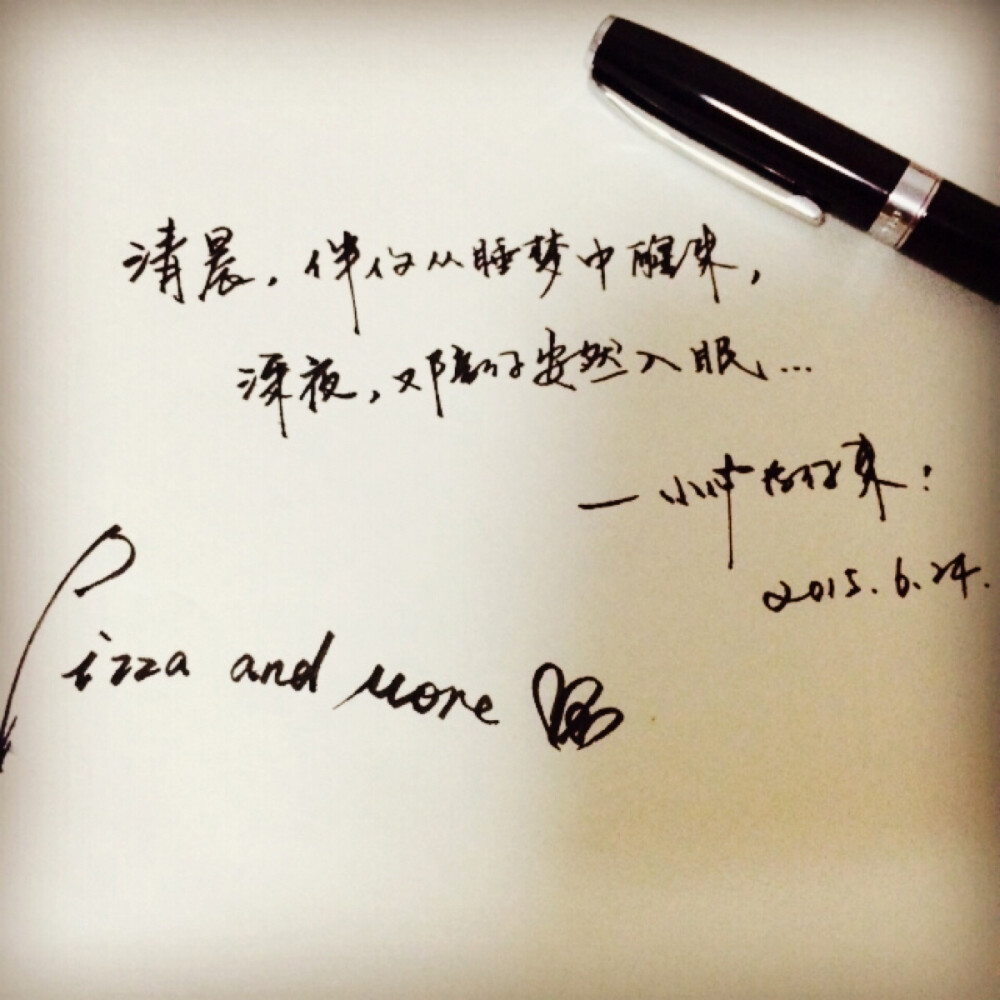 清晨，伴你从睡梦中醒来，
深夜，邓安然入眠...
一小
2015.6.24.
Pizza and more